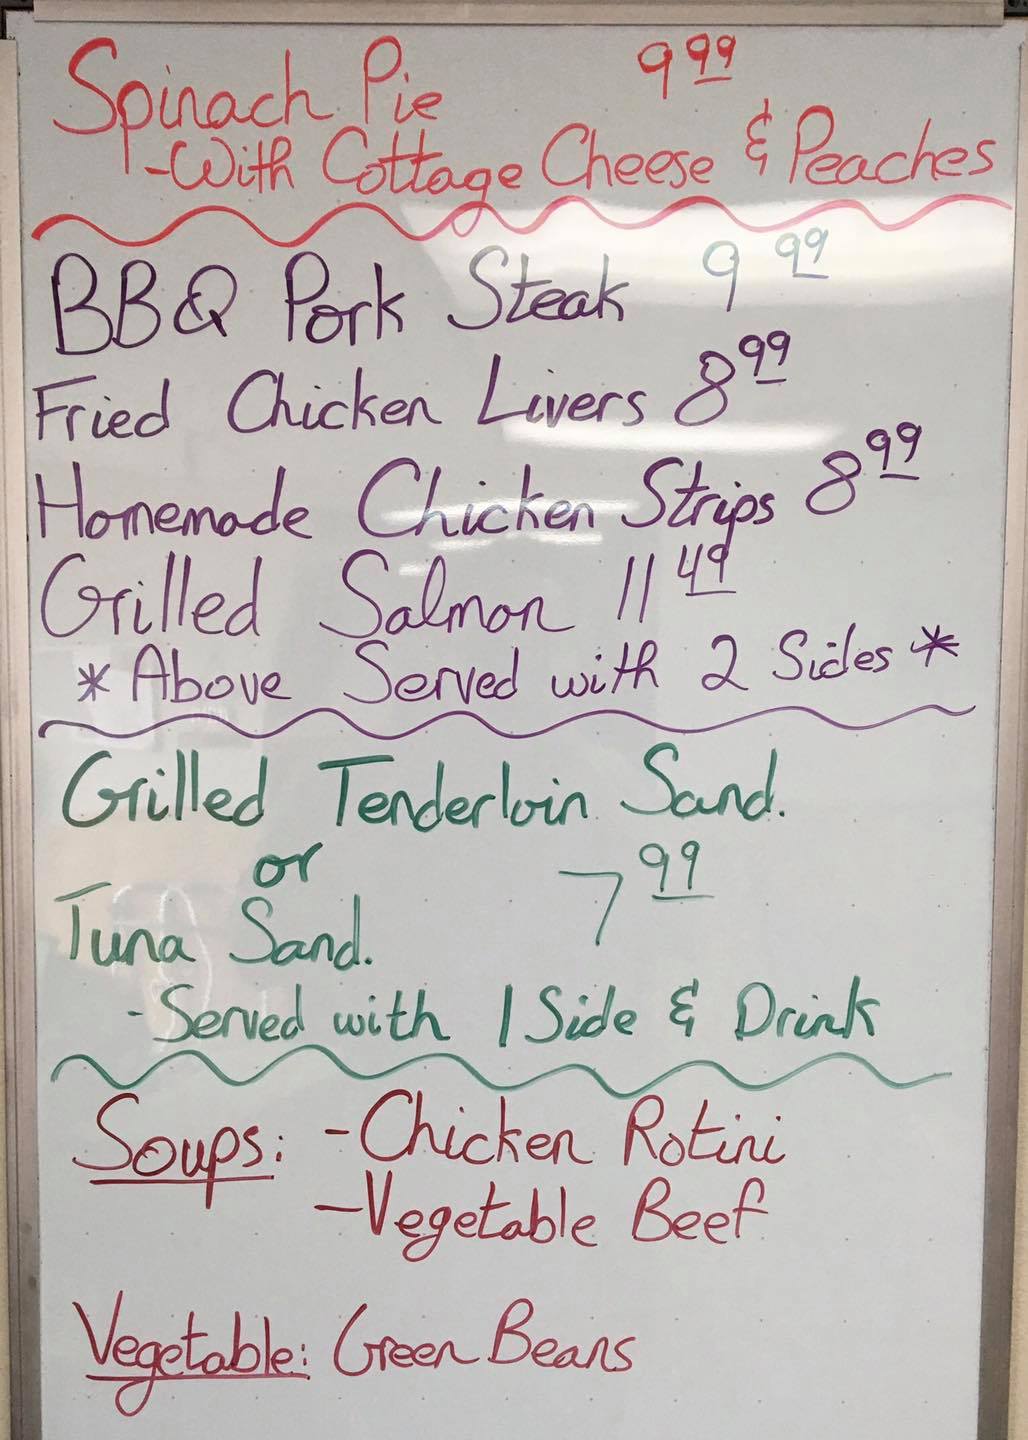 Spinach Pie 9 99
-With Cottage Cheese & Peaches
BBQ Pork Steak 9 99
Fried Chicken Livers 8 99
Homemade Chicken Strips 8 99
Grilled Salmon 11 49
* Above Served with 2 Sides *
Grilled Tenderloin Sand.
or
Tuna Sand. 7 99
-Served with 1 Side & Drink
Soups: -Chicken Rotini
-Vegetable Beef
Vegetable: Green Beans